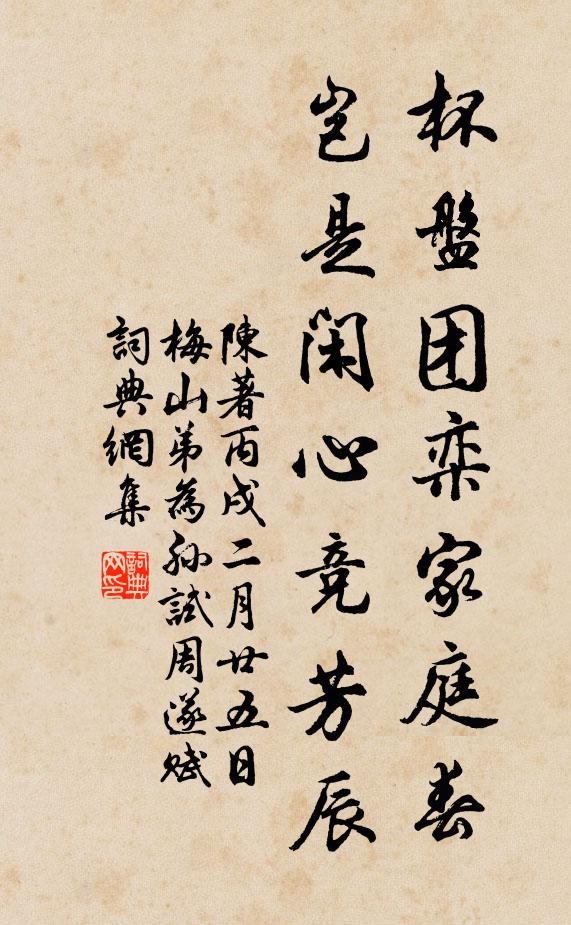 杯盤团栾家庭春
岂是闲心竞芳辰
陳著丙戌二月廿五日
梅山弟為孙試周遂赋
詞典網集
詞典网印